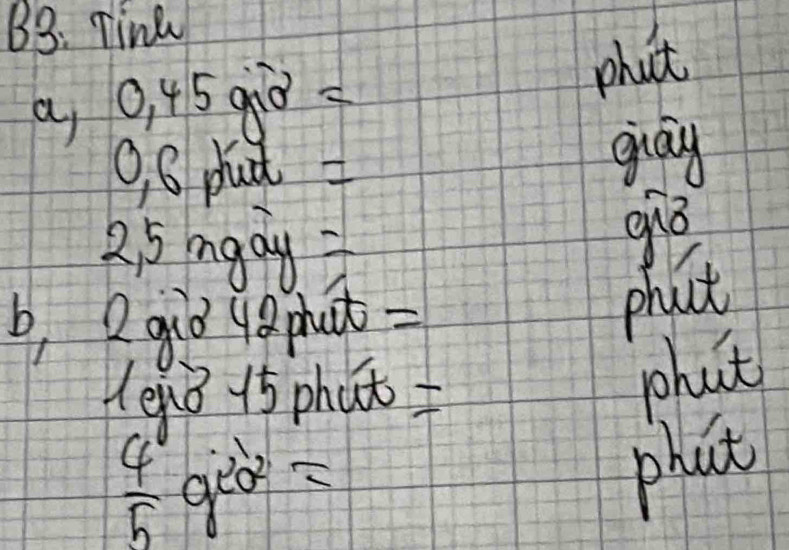 B3. Tính
a, 0,45 giờ = phút
0,6 phút = giây
2,5 ngày = giờ
b, 2 giờ 42 phút = phút
1 giờ 15 phút = phút
4/5 giờ = phút